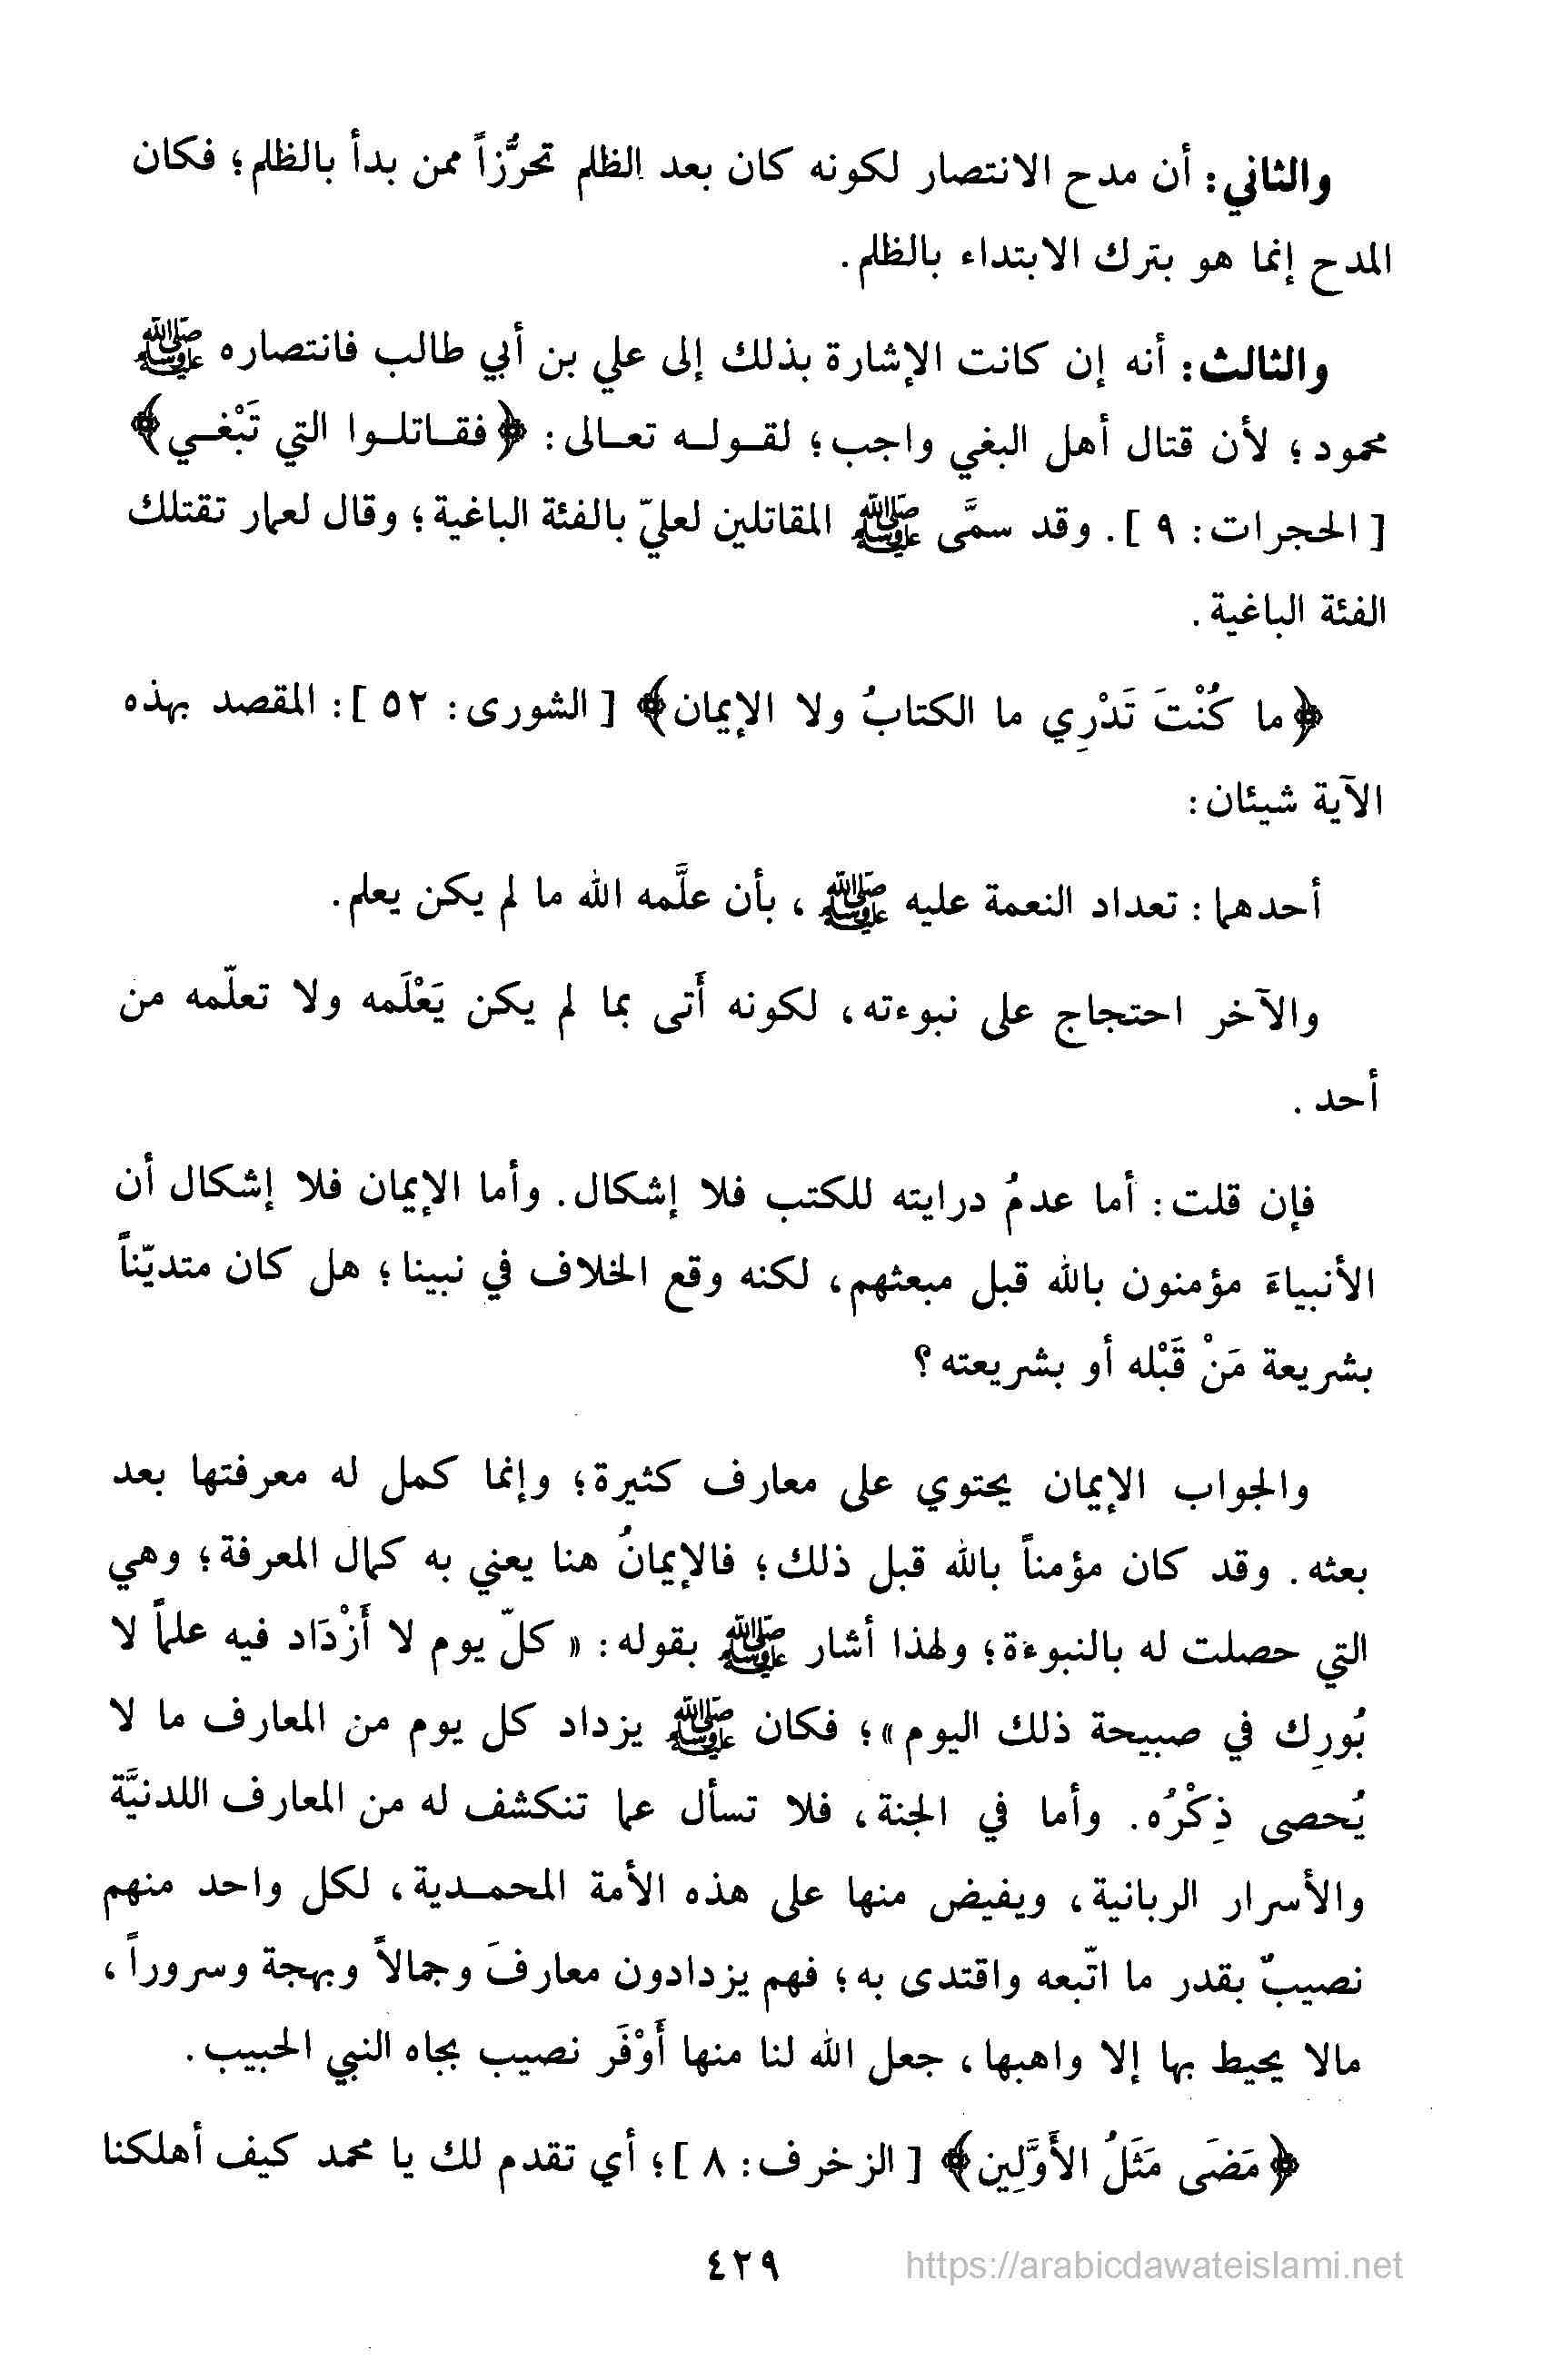 والثاني: أن مدح الانتصار لكونه كان بعد الظلم تحرُّزاً ممن بدأ بالظلم؛ فكان
المدح إنما هو بترك الابتداء بالظلم.
والثالث: أنه إن كانت الإشارة بذلك إلى علي بن أبي طالب فانتصاره ﷺ
محمود؛ لأن قتال أهل البغي واجب؛ لقوله تعالى: ﴿فقاتلوا التي تَبْغي﴾
[ الحجرات: ٩ ]. وقد سمَّى ﷺ المقاتلين لعليّ بالفئة الباغية؛ وقال لعمار تقتلك
الفئة الباغية.
﴿ما كُنْتَ تَدْرِي ما الكتابُ ولا الإيمان﴾ [ الشورى: ٥٢ ]: المقصد بهذه
الآية شيئان:
أحدهما: تعداد النعمة عليه ﷺ، بأن علَّمه الله ما لم يكن يعلم.
والآخر احتجاج على نبوءته، لكونه أَتى بما لم يكن يَعْلَمه ولا تعلّمه من
أحد.
فإن قلت: أما عدمُ درايته للكتب فلا إشكال. وأما الإيمان فلا إشكال أن
الأنبياءَ مؤمنون بالله قبل مبعثهم، لكنه وقع الخلاف في نبينا؛ هل كان متديّناً
بشريعة مَنْ قَبْله أو بشريعته؟
والجواب الإيمان يحتوي على معارف كثيرة؛ وإنما كمل له معرفتها بعد
بعثه. وقد كان مؤمناً بالله قبل ذلك؛ فالإيمانُ هنا يعني به كمال المعرفة؛ وهي
التي حصلت له بالنبوءة؛ ولهذا أشار ﷺ بقوله: « كلّ يوم لا أَزْدَاد فيه علماً لا
بُورِك في صبيحة ذلك اليوم »؛ فكان ﷺ يزداد كل يوم من المعارف ما لا
يُحصى ذِكْرُه. وأما في الجنة، فلا تسأل عما تنكشف له من المعارف اللدنيَّة
والأسرار الربانية، ويفيض منها على هذه الأمة المحمدية، لكل واحد منهم
نصيبٌ بقدر ما اتّبعه واقتدى به؛ فهم يزدادون معارفَ وجمالاً وبهجة وسروراً،
مالا يحيط بها إلا واهبها، جعل الله لنا منها أَوْفَر نصيب بجاه النبي الحبيب.
﴿مَضَى مَثَلُ الأَوَّلِين﴾ [ الزخرف: ٨ ]؛ أي تقدم لك يا محمد كيف أهلكنا
٤٢٩
https://arabicdawateislami.net